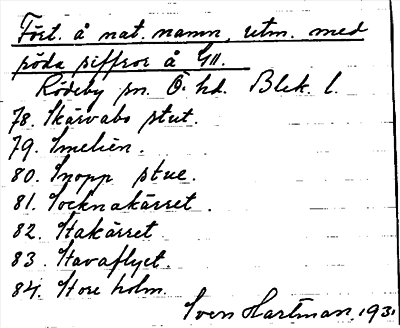 Fört. å nat. namn, utm. med
röda siffror å GII.
Rödeby sn. Ö. hd. Blek. l.
78. Skärvabo stut.
79. Smelien.
80. Snopp stue.
81. Socknakärret.
82. Stakärret
83. Stavaflyet.
84. Store holm.
Sven Hartman, 193